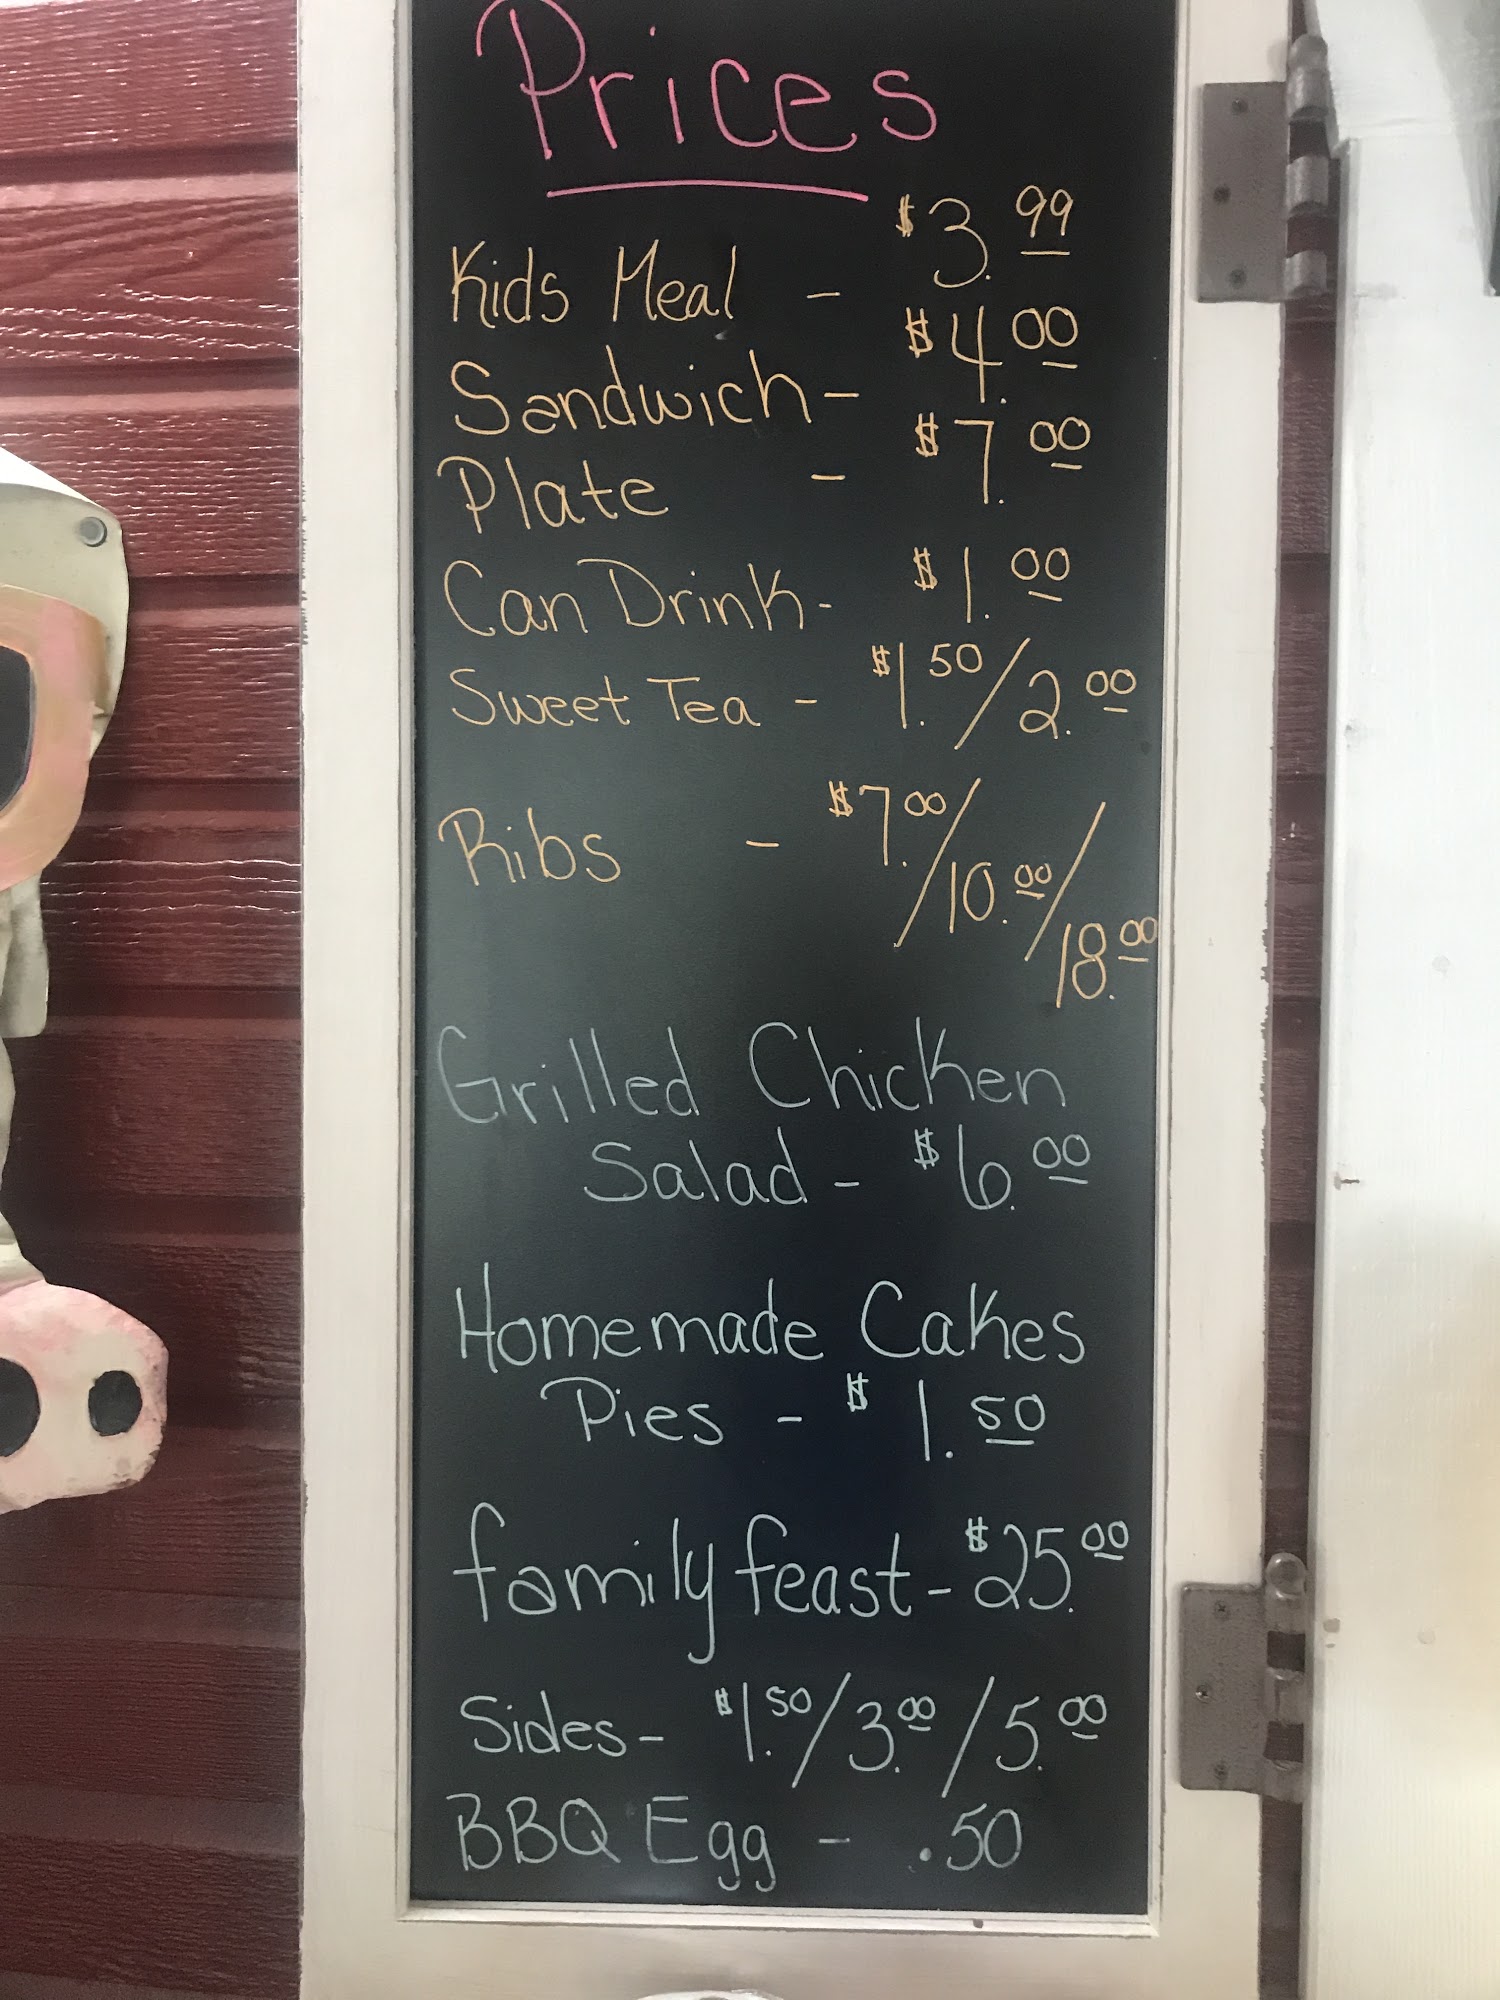 Prices
Kids Meal - $3.99
Sandwich - $4.00
Plate - $7.00
Can Drink - $1.00
Sweet Tea - $1.50/2.00
Ribs - $7.00/10.00/18.00
Grilled Chicken
Salad - $6.00
Homemade Cakes
Pies - $1.50
family feast - $25.00
Sides - $1.50/3.00/5.00
BBQ Egg - .50